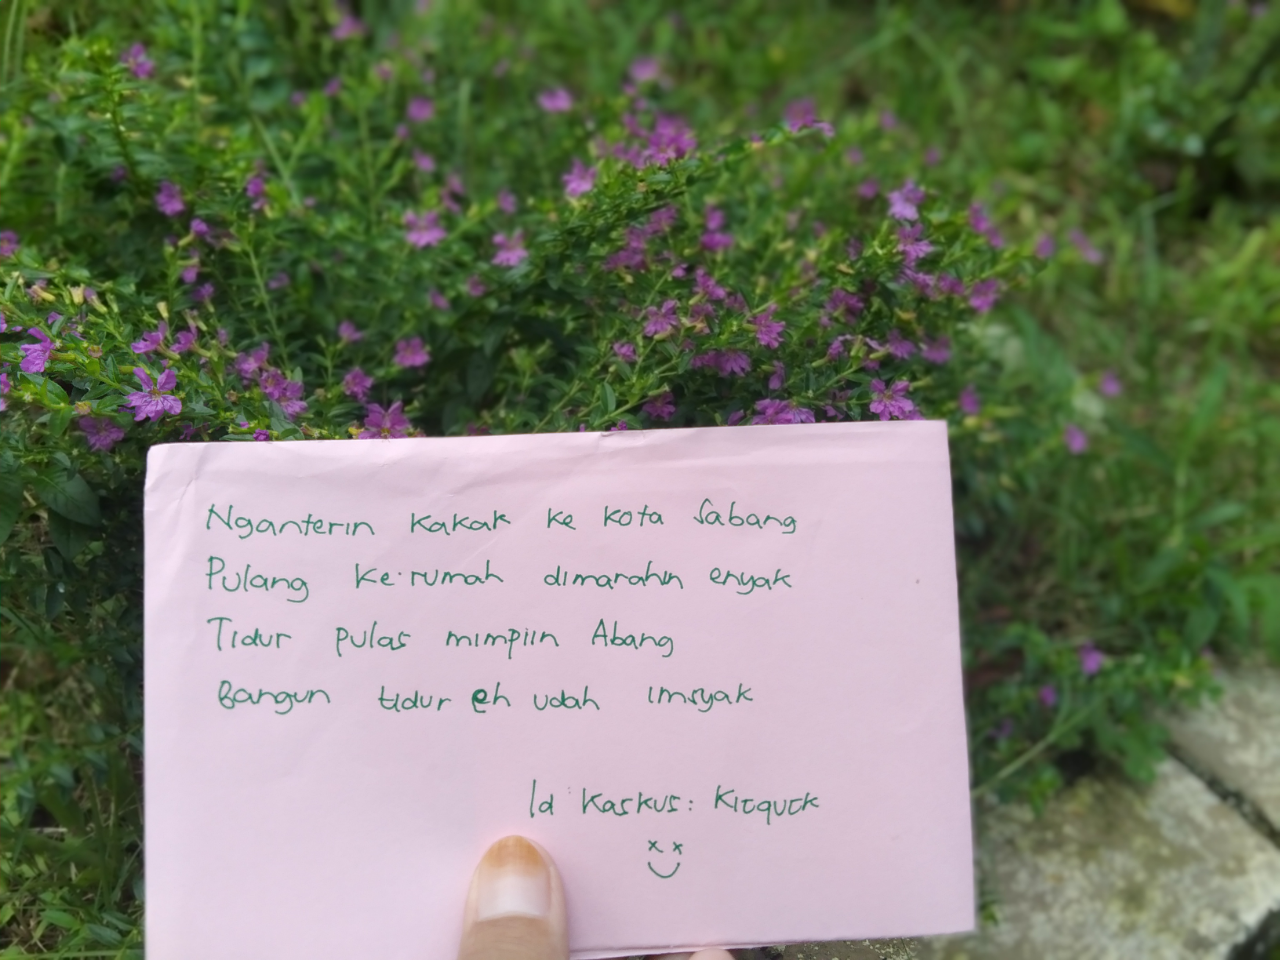 Nganterin kakak ke kota Sabang
Pulang ke rumah dimarahin enyak
Tidur pulas mimpiin Abang
Bangun tidur eh udah imsyak
Id Kaskus: